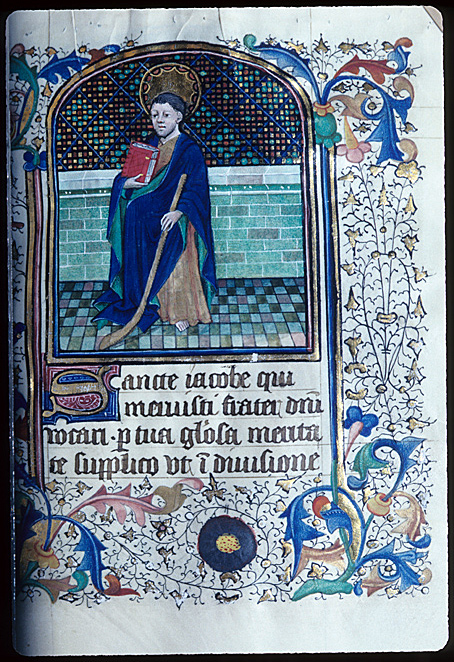 Sancte iacobe qui
meruisti frater dñi
vocari · ꝑ tua glōsa merita
te supplico vt ī diuisione